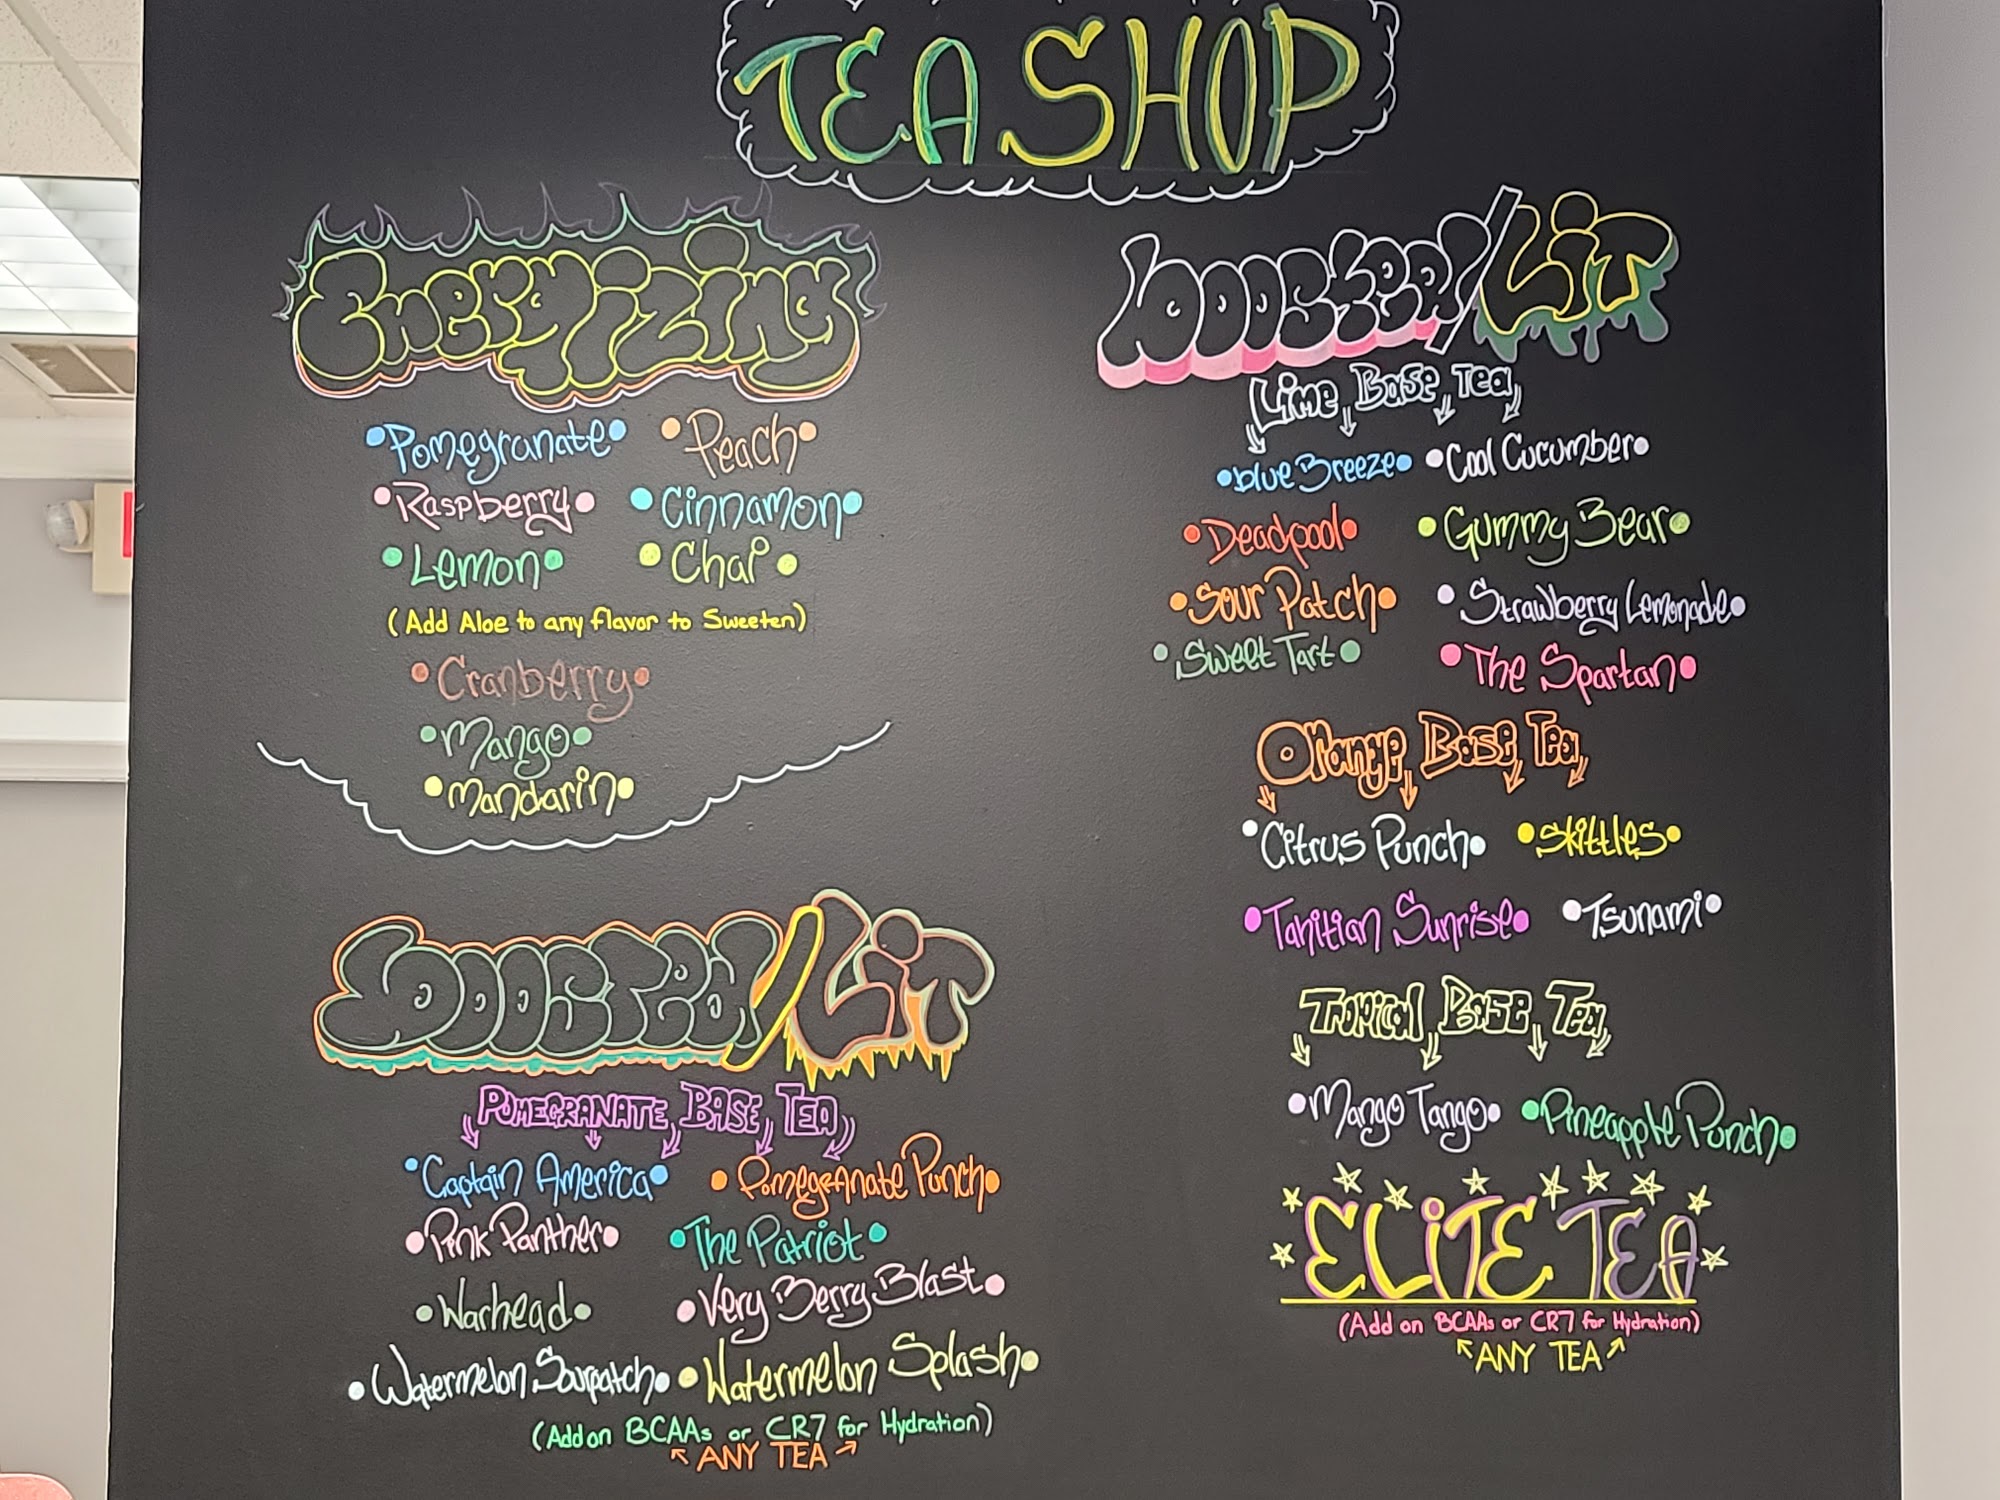 TEA SHOP
Energizing
•Pomegranate• •Peach•
•Raspberry• •Cinnamon•
•Lemon• •Chai•
(Add Aloe to any flavor to Sweeten)
•Cranberry•
•Mango•
•Mandarin•
Boosted/Lit
POMEGRANATE BASE TEA
•Captain America• •Pomegranate Punch•
•Pink Panther• •The Patriot•
•Warhead• •Very Berry Blast•
•Watermelon Sourpatch• •Watermelon Splash•
(Add on BCAAs or CR7 for Hydration)
ANY TEA
Boosted/Lit
Lime Base Tea
•blue Breeze• •Cool Cucumber•
•Deadpool• •Gummy Bear•
•Sour Patch• •Strawberry Lemonade•
•Sweet Tart• •The Spartan•
Orange Base Tea
•Citrus Punch• •Skittles•
•Tahitian Sunrise• •Tsunami•
Tropical Base Tea
•Mango Tango• •Pineapple Punch•
ELiTE TEA
(Add on BCAAs or CR7 for Hydration)
ANY TEA